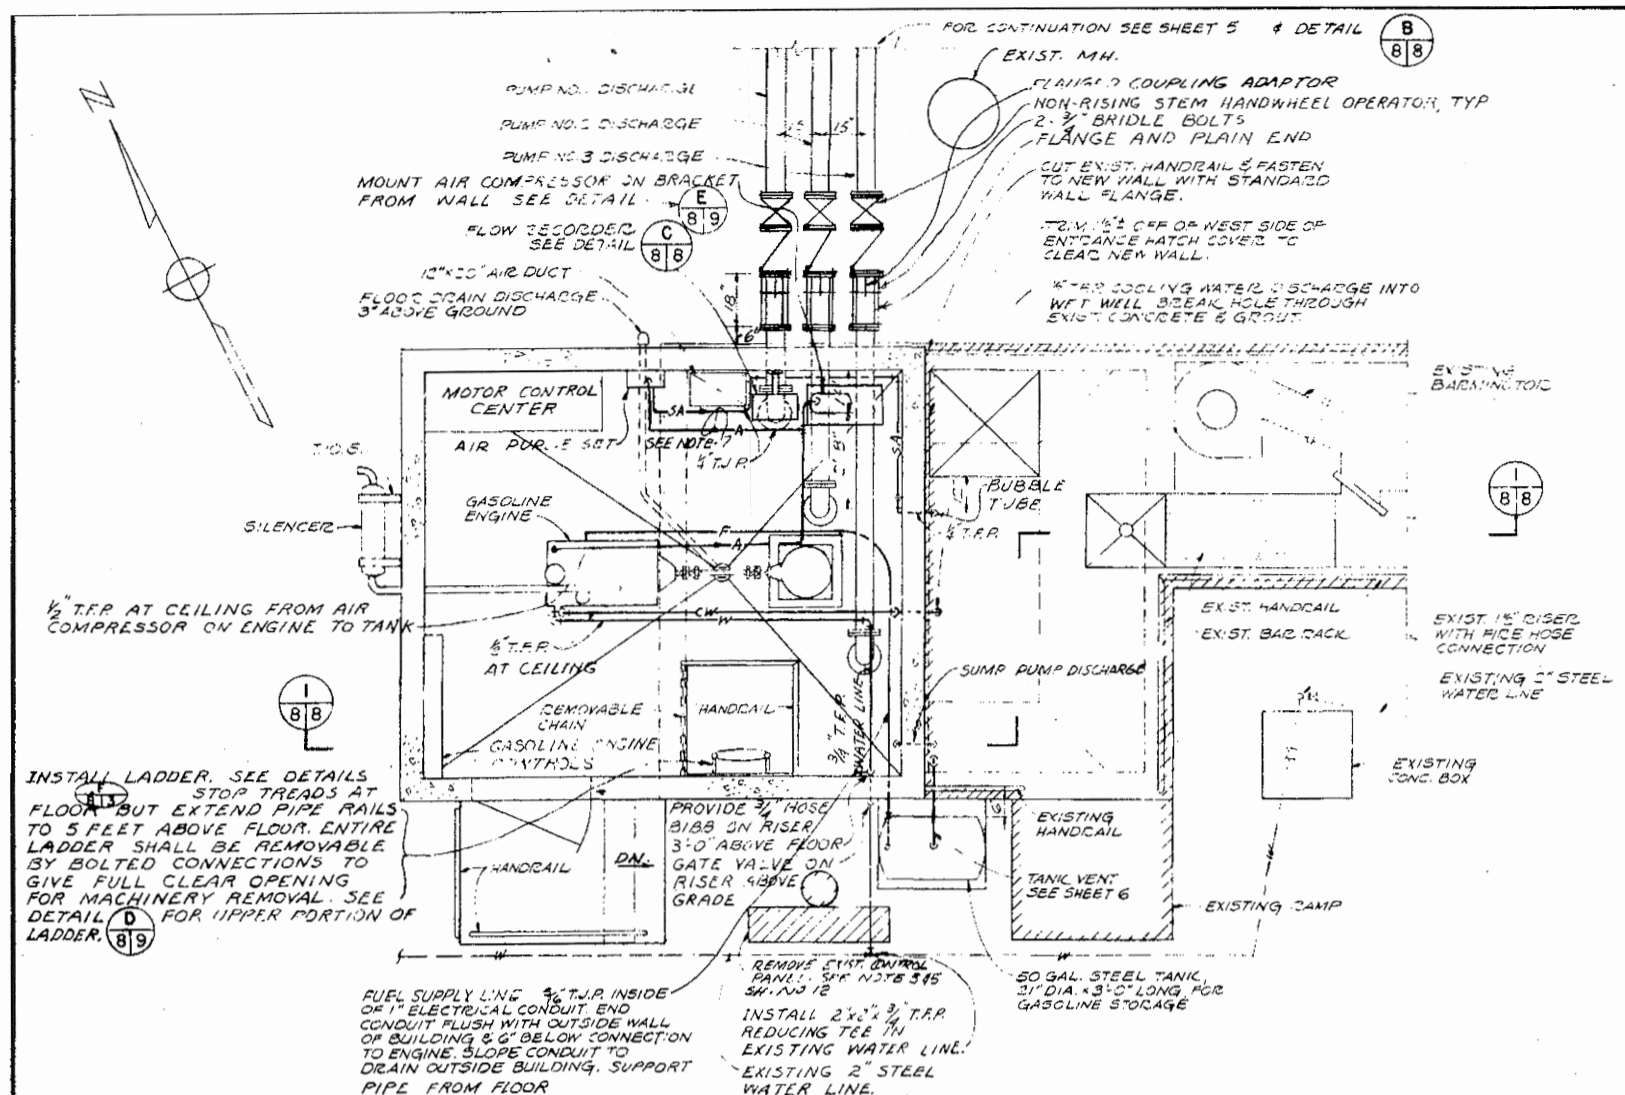 FOR CONTINUATION SEE SHEET 5 & DETAIL
B
8 8
EXIST. MH.
FLANGED COUPLING ADAPTOR
NON-RISING STEM HANDWHEEL OPERATOR, TYP
2- 3/4" BRIDLE BOLTS
FLANGE AND PLAIN END
CUT EXIST. HANDRAIL & FASTEN
TO NEW WALL WITH STANDARD
WALL FLANGE.
TRIM OFF OF WEST SIDE OF
ENTRANCE HATCH COVER TO
CLEAR NEW WALL.
COOLING WATER DISCHARGE INTO
WET WELL BREAK HOLE THROUGH
EXIST. CONCRETE & GROUT.
N
PUMP NO. DISCHARGE
PUMP NO. 2 DISCHARGE
PUMP NO. 3 DISCHARGE
15" 15"
MOUNT AIR COMPRESSOR ON BRACKET
FROM WALL SEE DETAIL
E
8 9
FLOW RECORDER
SEE DETAIL
C
8 8
AIR DUCT
FLOOR DRAIN DISCHARGE
3" ABOVE GROUND
18"
6"
MOTOR CONTROL
CENTER
AIR PURGE SET
SEE NOTE 7
SA
A
1/4" T.J.P.
8"
SA
EXISTING
BARMINUTOR
T.O.S.
SILENCER
GASOLINE
ENGINE
F
A
BUBBLE
TUBE
T.F.P.
1
8 8
1/2" T.F.P. AT CEILING FROM AIR
COMPRESSOR ON ENGINE TO TANK
CW
W
T.F.P.
AT CEILING
EXIST. HANDRAIL
EXIST. BAR RACK
EXIST. 1½" RISER
WITH FIRE HOSE
CONNECTION
EXISTING 2" STEEL
WATER LINE
SUMP PUMP DISCHARGE
1
8 8
REMOVABLE
CHAIN
HANDRAIL
3/4" T.F.P.
WATER LINE
GASOLINE ENGINE
CONTROLS
EXISTING
CONC. BOX
INSTALL LADDER. SEE DETAILS
F
8 13
STOP TREADS AT
FLOOR BUT EXTEND PIPE RAILS
TO 5 FEET ABOVE FLOOR. ENTIRE
LADDER SHALL BE REMOVABLE
BY BOLTED CONNECTIONS TO
GIVE FULL CLEAR OPENING
FOR MACHINERY REMOVAL. SEE
DETAIL
D
8 9
FOR UPPER PORTION OF
LADDER.
HANDRAIL
DN.
PROVIDE 3/4" HOSE
BIBB ON RISER
3'-0" ABOVE FLOOR
GATE VALVE ON
RISER ABOVE
GRADE
6"
EXISTING
HANDRAIL
TANK VENT
SEE SHEET 6
EXISTING RAMP
W
W
W
FUEL SUPPLY LINE T.J.P. INSIDE
OF 1" ELECTRICAL CONDUIT. END
CONDUIT FLUSH WITH OUTSIDE WALL
OF BUILDING & 6" BELOW CONNECTION
TO ENGINE. SLOPE CONDUIT TO
DRAIN OUTSIDE BUILDING. SUPPORT
PIPE FROM FLOOR
REMOVE EXIST. CONTROL
PANEL. SEE NOTE
SH. NO 12
INSTALL 2"x2"x 3/4 T.F.P.
REDUCING TEE IN
EXISTING WATER LINE.
EXISTING 2" STEEL
WATER LINE.
50 GAL. STEEL TANK,
21" DIA. x 3'-0" LONG, FOR
GASOLINE STORAGE